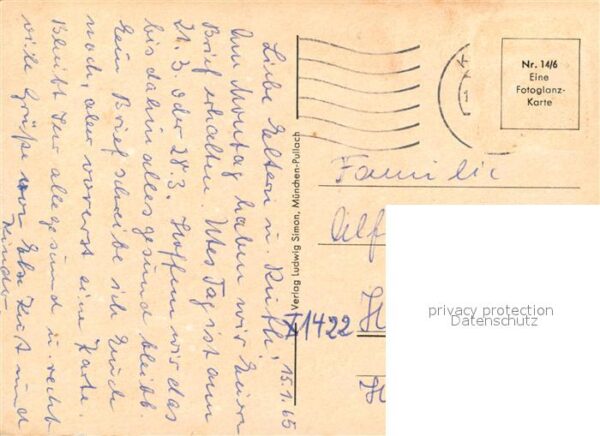 15.1.65
Liebe Eltern u. Ruth!
Am Montag haben wir Euren
Brief erhalten. Utes Tag ist am
21.3. oder 28.3. Hoffen wir das
bis dahin alles gesund bleibt.
Ein Brief schreibe ich Euch
noch, aber vorerst eine Karte.
Bleibt Ihr alle gesund u. recht
viele Grüße von Else Kurt und
Kinder.
Verlag Ludwig Simon, München-Pullach
Nr. 14/6
Eine
Fotoglanz-
Karte
Familie
Alf
X1422
privacy protection
Datenschutz